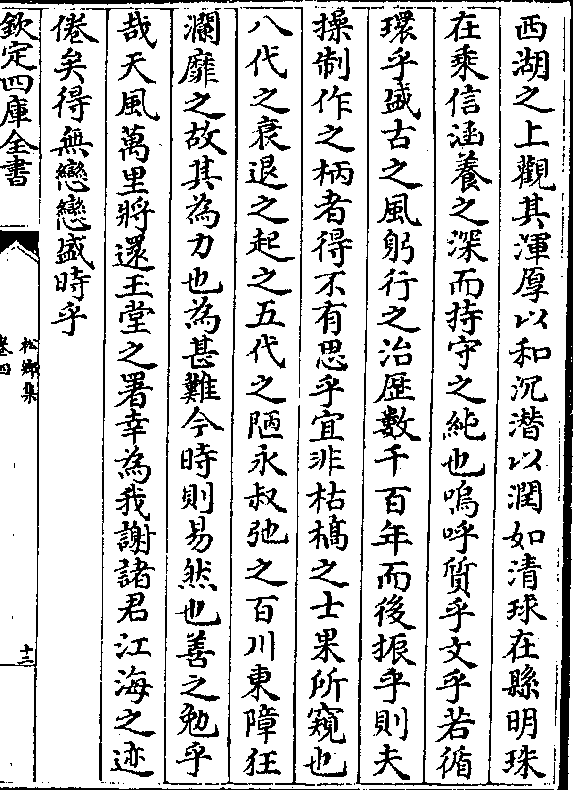 西湖之上觀其渾厚以和沉潛以潤如清球在縣明珠
在乘信涵養之深而持守之純也嗚呼質乎文乎若循
環乎盛古之風躬行之治歴數千百年而後振乎則夫
操制作之柄者得不有思乎宜非枯槁之士果所窺也
八代之衰退之起之五代之陋永叔弛之百川東障狂
瀾靡之故其為力也為甚難今時則易然也善之勉乎
哉天風萬里將還玉堂之署幸為我謝諸君江海之迹
倦矣得無戀戀盛時乎
欽定四庫全書
松鄉集
卷四
十三